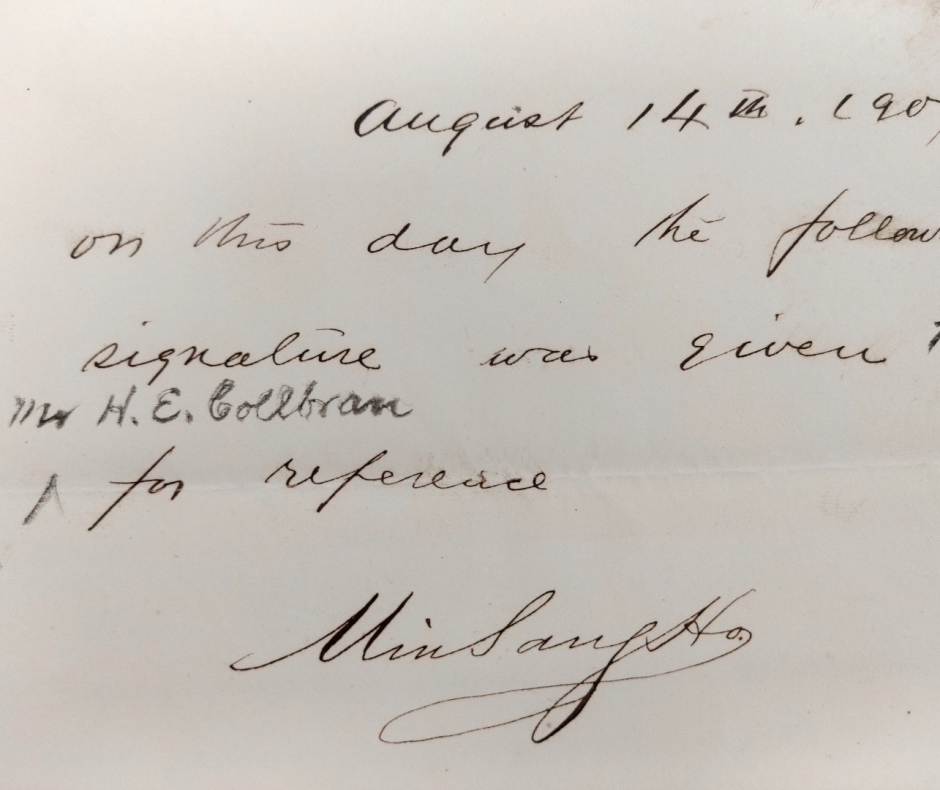 August 14th. 190
on this day the follow
signature was given
Mr H. E. Collbran
for reference
Min Sang Ho